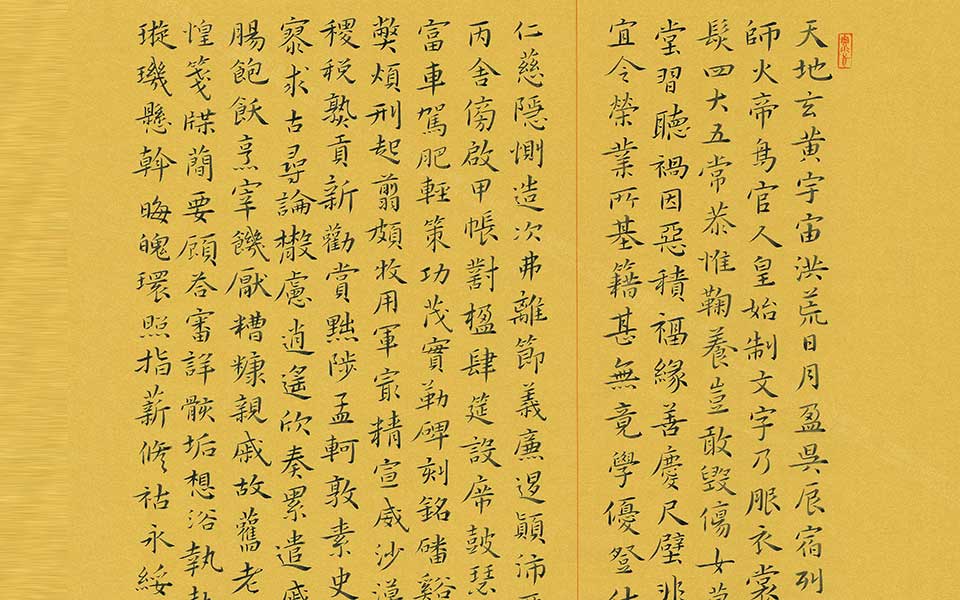 天地玄黄宇宙洪荒日月盈昃辰宿列
師火帝鳥官人皇始制文字乃服衣裳
髮四大五常恭惟鞠養豈敢毀傷女慕
堂習聽禍因惡積福緣善慶尺璧非
宜令榮業所基籍甚無竟學優登仕
仁慈隱惻造次弗離節義廉退顛沛
丙舍傍啟甲帳對楹肆筵設席鼓瑟
富車駕肥輕策功茂實勒碑刻銘磻谿
弊煩刑起翦頗牧用軍最精宣威沙漠
稷稅熟貢新勸賞黜陟孟軻敦素史
寥求古尋論散慮逍遙欣奏累遣慼
腸飽飫烹宰饑厭糟糠親戚故舊老
惶箋牒簡要顧答審詳骸垢想浴執
璇璣懸斡晦魄環照指薪修祜永綏